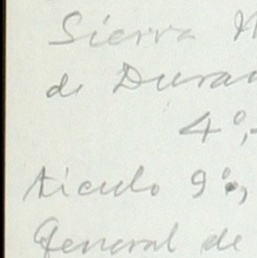 Sierra
de Duran
4°,
tículo 9°,
General de